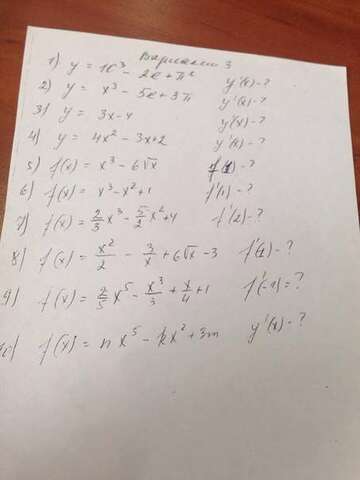 Вариант 3
1) y = x³ - 2x + π² y'(x) - ?
2) y = x³ - 5x + 3π y'(x) - ?
3) y = 3x - 4 y'(x) - ?
4) y = 4x² - 3x + 2 y'(x) - ?
5) f(x) = x³ - 6√x f'(1) - ?
6) f(x) = x³ - x² + 1 f'(1) - ?
7) f(x) = 2/3 x³ - 5/2 x² + 4 f'(2) - ?
8) f(x) = x²/2 - 3/x + 6√x - 3 f'(1) - ?
9) f(x) = 2/5 x⁵ - x³/3 + x/4 + 1 f'(-1) = ?
10) f(x) = n x⁵ - k x² + 3m y'(x) - ?